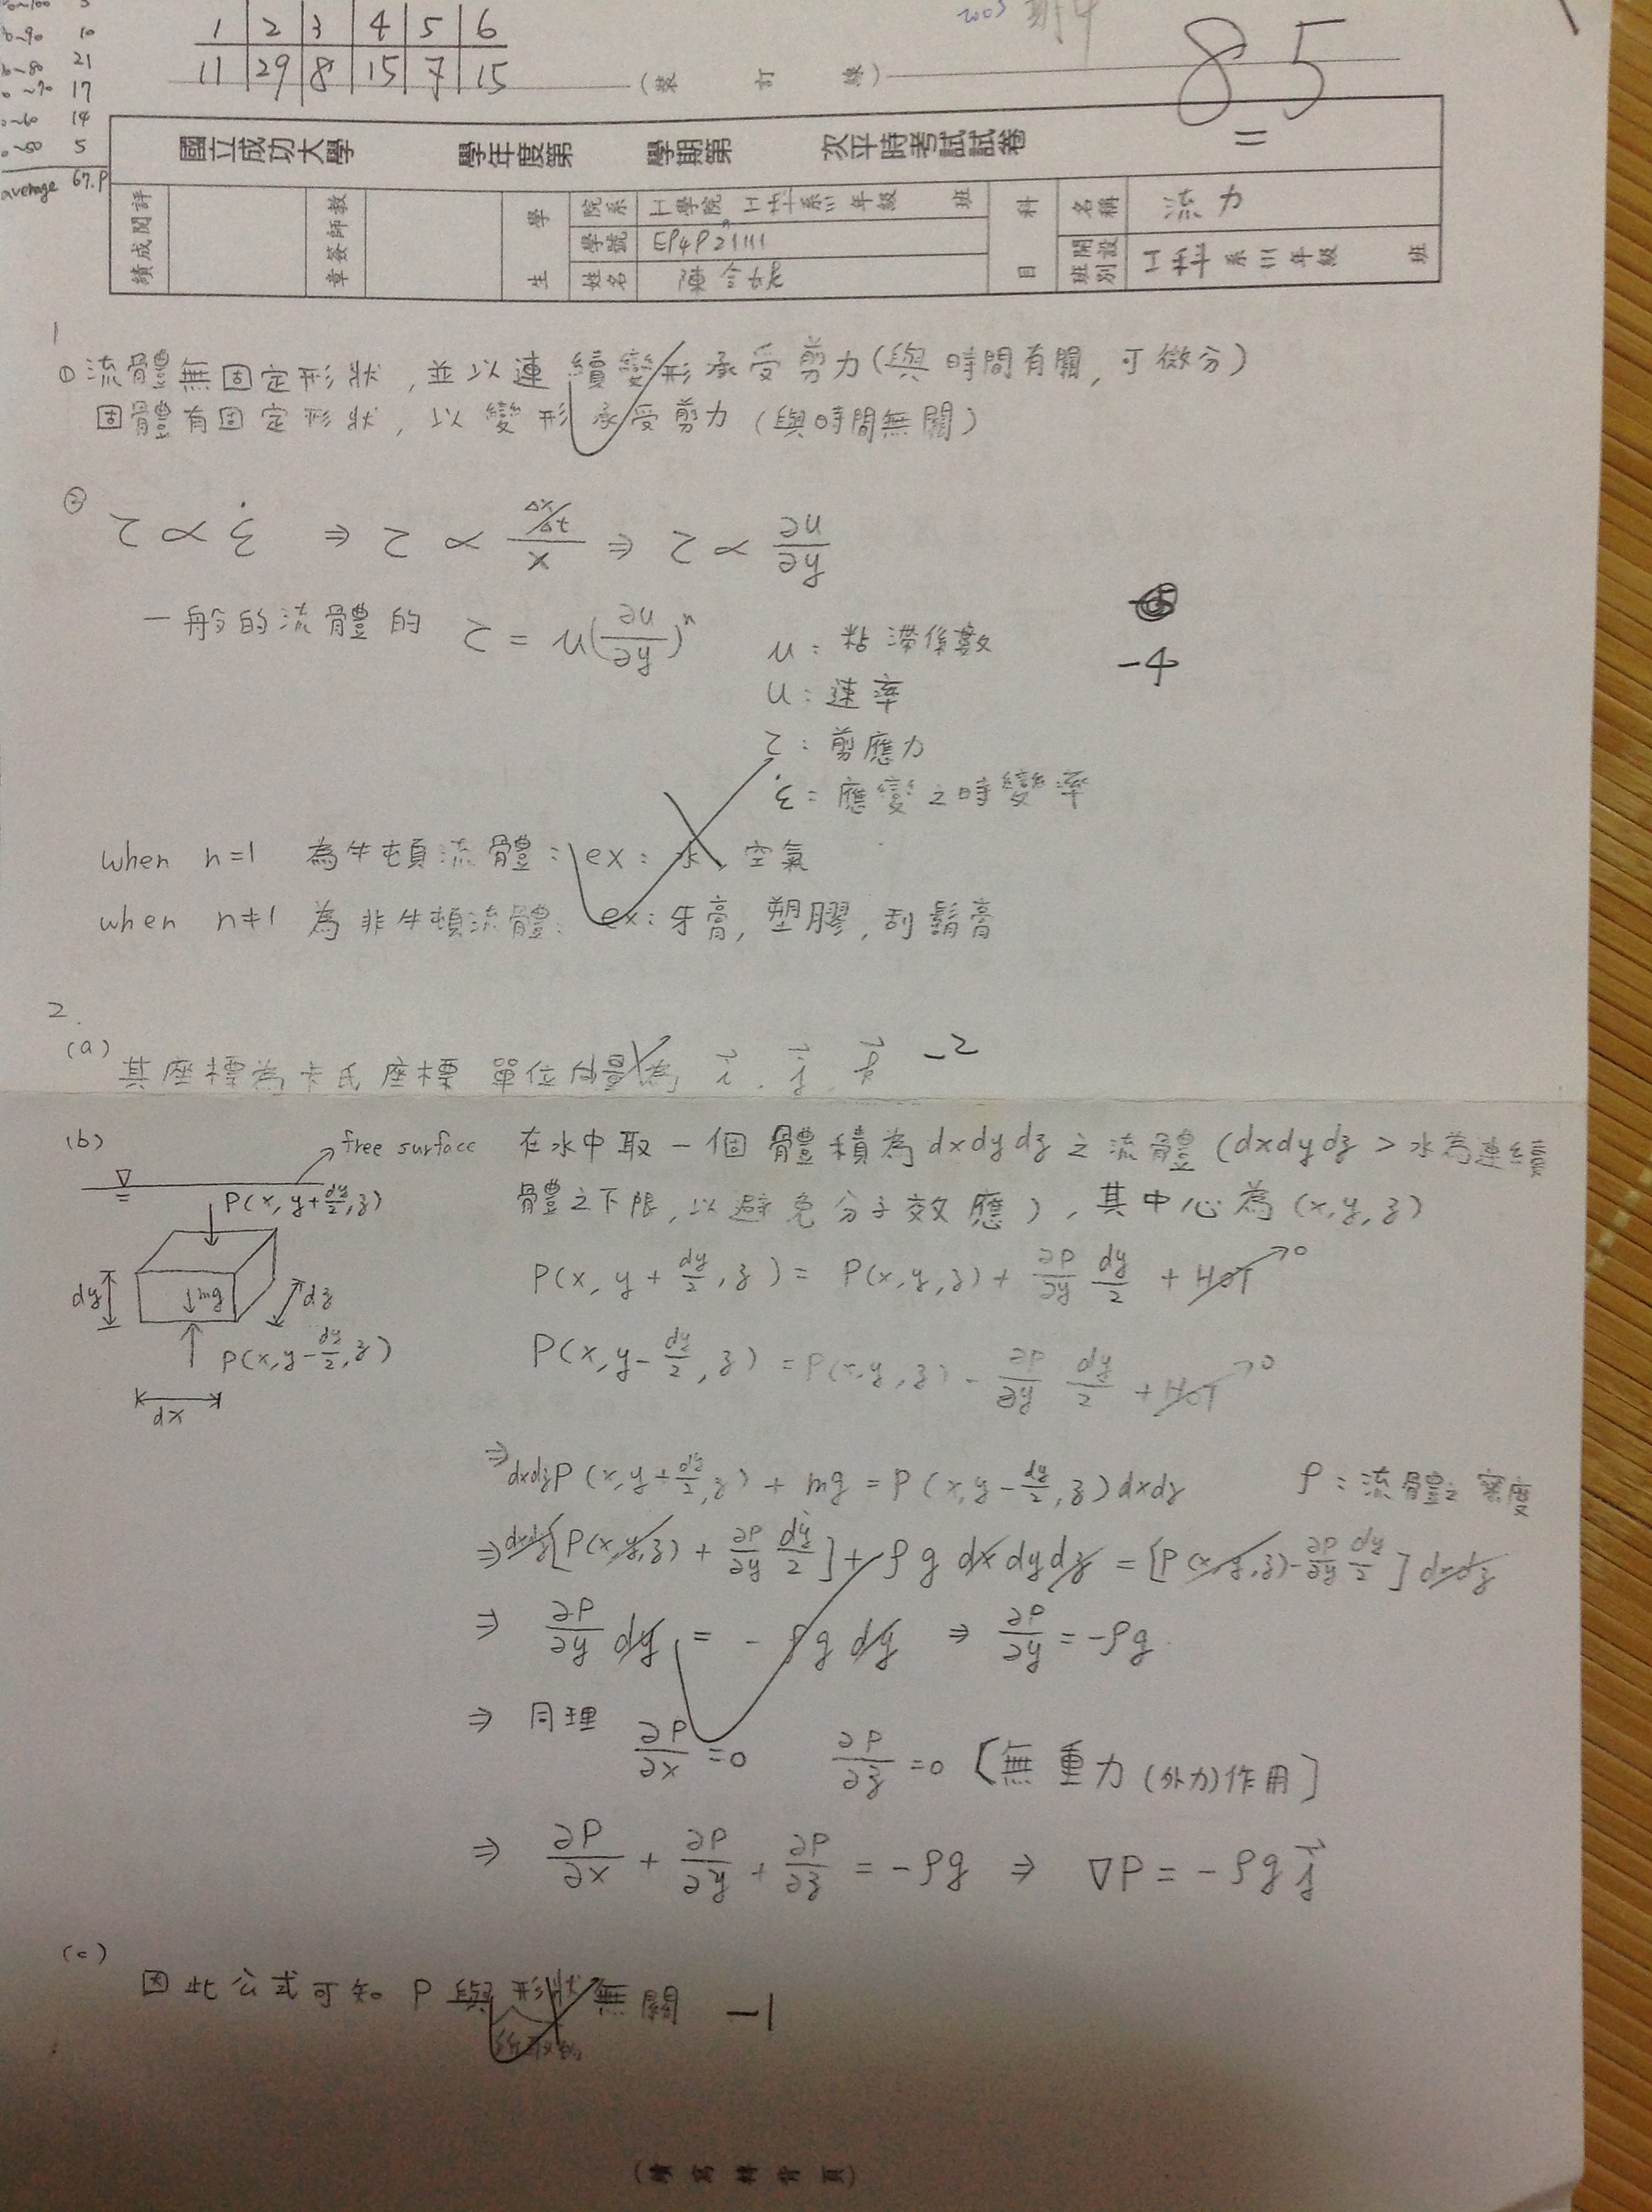 5
10
21
17
14
5
average 67.9
1 2 3 4 5 6
11 29 8 15 7 15
2003 期中
85
(裝 訂 線)
國立成功大學 學年度第 學期第 次平時考試試卷
評閱成績
教師簽章
學生
院系 工學院 工科系三年級 班
學號
姓名
科目
名稱 流力
開設班別 工科系三年級 班
1
① 流體無固定形狀,並以連續變形承受剪力(與時間有關,可微分)
固體有固定形狀,以變形承受剪力(與時間無關)
② τ ∝ ε̇ ⇒ τ ∝ (Δx/Δt)/x ⇒ τ ∝ ∂u/∂y
一般的流體的 τ = μ(∂u/∂y)^n
μ: 粘滯係數
-4
u: 速率
τ: 剪應力
ε̇: 應變之時變率
when n=1 為牛頓流體: ex: 水、空氣
when n≠1 為非牛頓流體: ex: 牙膏, 塑膠, 刮鬍膏
2.
(a) 其座標為卡氏座標 單位向量為 i⃗. j⃗. k⃗ -2
(b)
free surface
P(x, y+dy/2, z)
dy
mg
dz
P(x, y-dy/2, z)
dx
在水中取一個體積為dxdydz之流體(dxdydz > 水為連續
體之下限,以避免分子效應),其中心為(x,y,z)
P(x, y+dy/2, z) = P(x,y,z) + ∂P/∂y dy/2 + HOT→0
P(x, y-dy/2, z) = P(x,y,z) - ∂P/∂y dy/2 + HOT→0
⇒ dxdzP(x,y+dy/2,z) + mg = P(x,y-dy/2,z)dxdz ρ: 流體之密度
⇒ dxdz[P(x,y,z) + ∂P/∂y dy/2] + ρg dxdydz = [P(x,y,z) - ∂P/∂y dy/2] dxdz
⇒ ∂P/∂y dy = -ρg dy ⇒ ∂P/∂y = -ρg
⇒ 同理 ∂P/∂x = 0 ∂P/∂z = 0 [無重力(外力)作用]
⇒ ∂P/∂x + ∂P/∂y + ∂P/∂z = -ρg ⇒ ∇P = -ρg j⃗
(c)
因此公式可知 P 與形狀無關 -1
所取的
(續寫轉背頁)